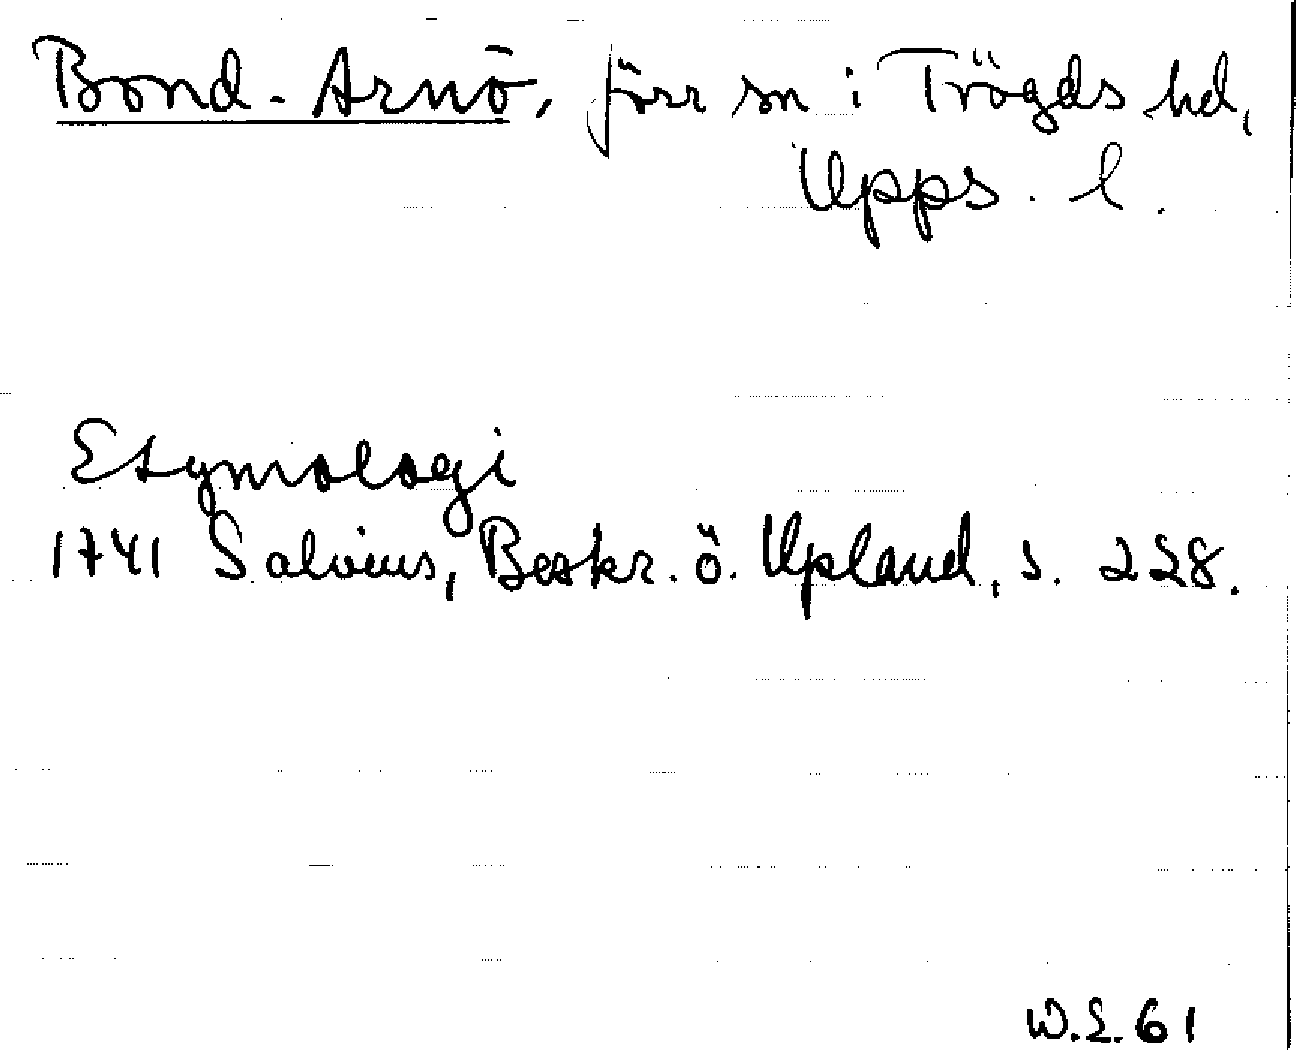 Bond-Arnö, förr sn i Trögds hd,
Upps. l.
Etymologi
1741 Salvius, Beskr. ö. Upland, s. 228.
W.S. 61